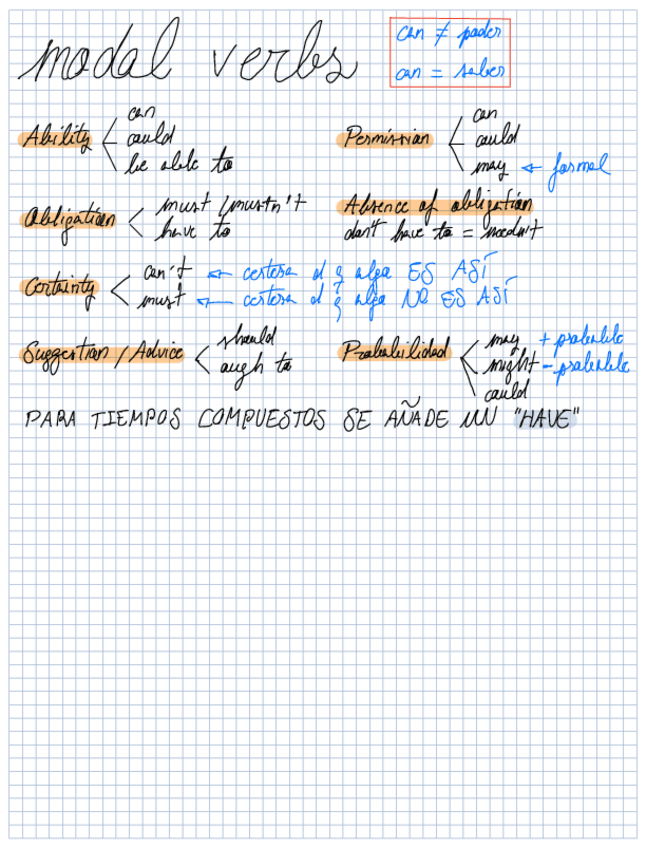 modal verbs
can ≠ poder
can = saber
Ability < can
could
be able to
Permission < can
could
may ← formal
Obligation < must / mustn't
have to
Absence of obligation
don't have to = needn't
Certainty < can't ← certeza d q algo ES ASÍ
must ← certeza d q algo NO ES ASÍ
Suggestion / Advice < should
ough to
Probabilidad < may + probable
might - probable
could
PARA TIEMPOS COMPUESTOS SE AÑADE UN "HAVE"